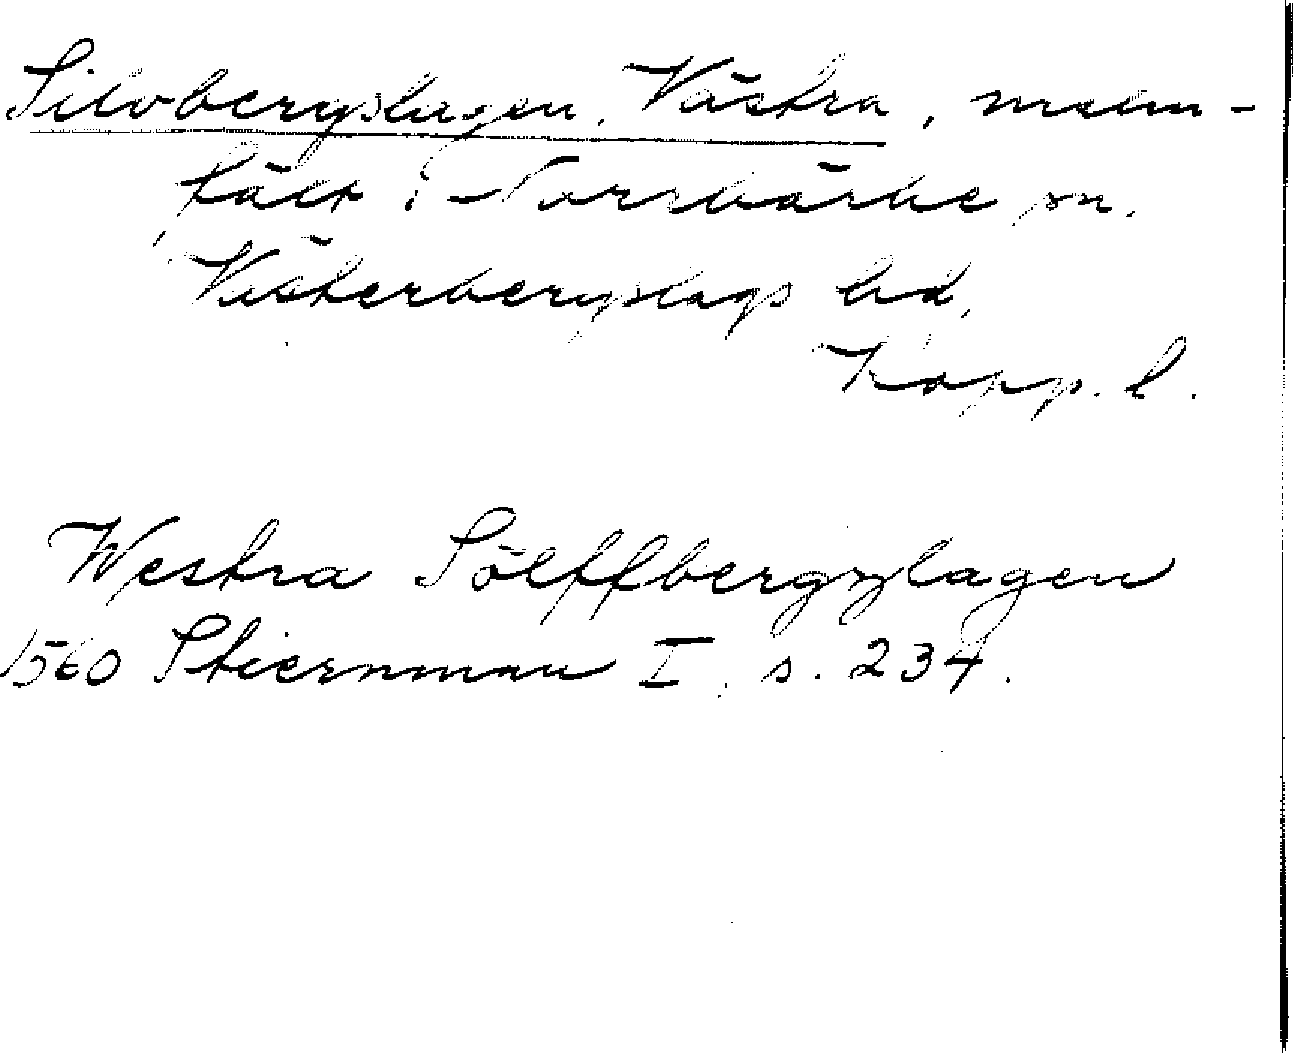 Silvbergslagen, Västra, malm-
fält i Norrbärke sn.
Västerbergslags hd,
Kopp. l.
Westra Sölffbergzlagen
1560 Stiernman I, s. 234.